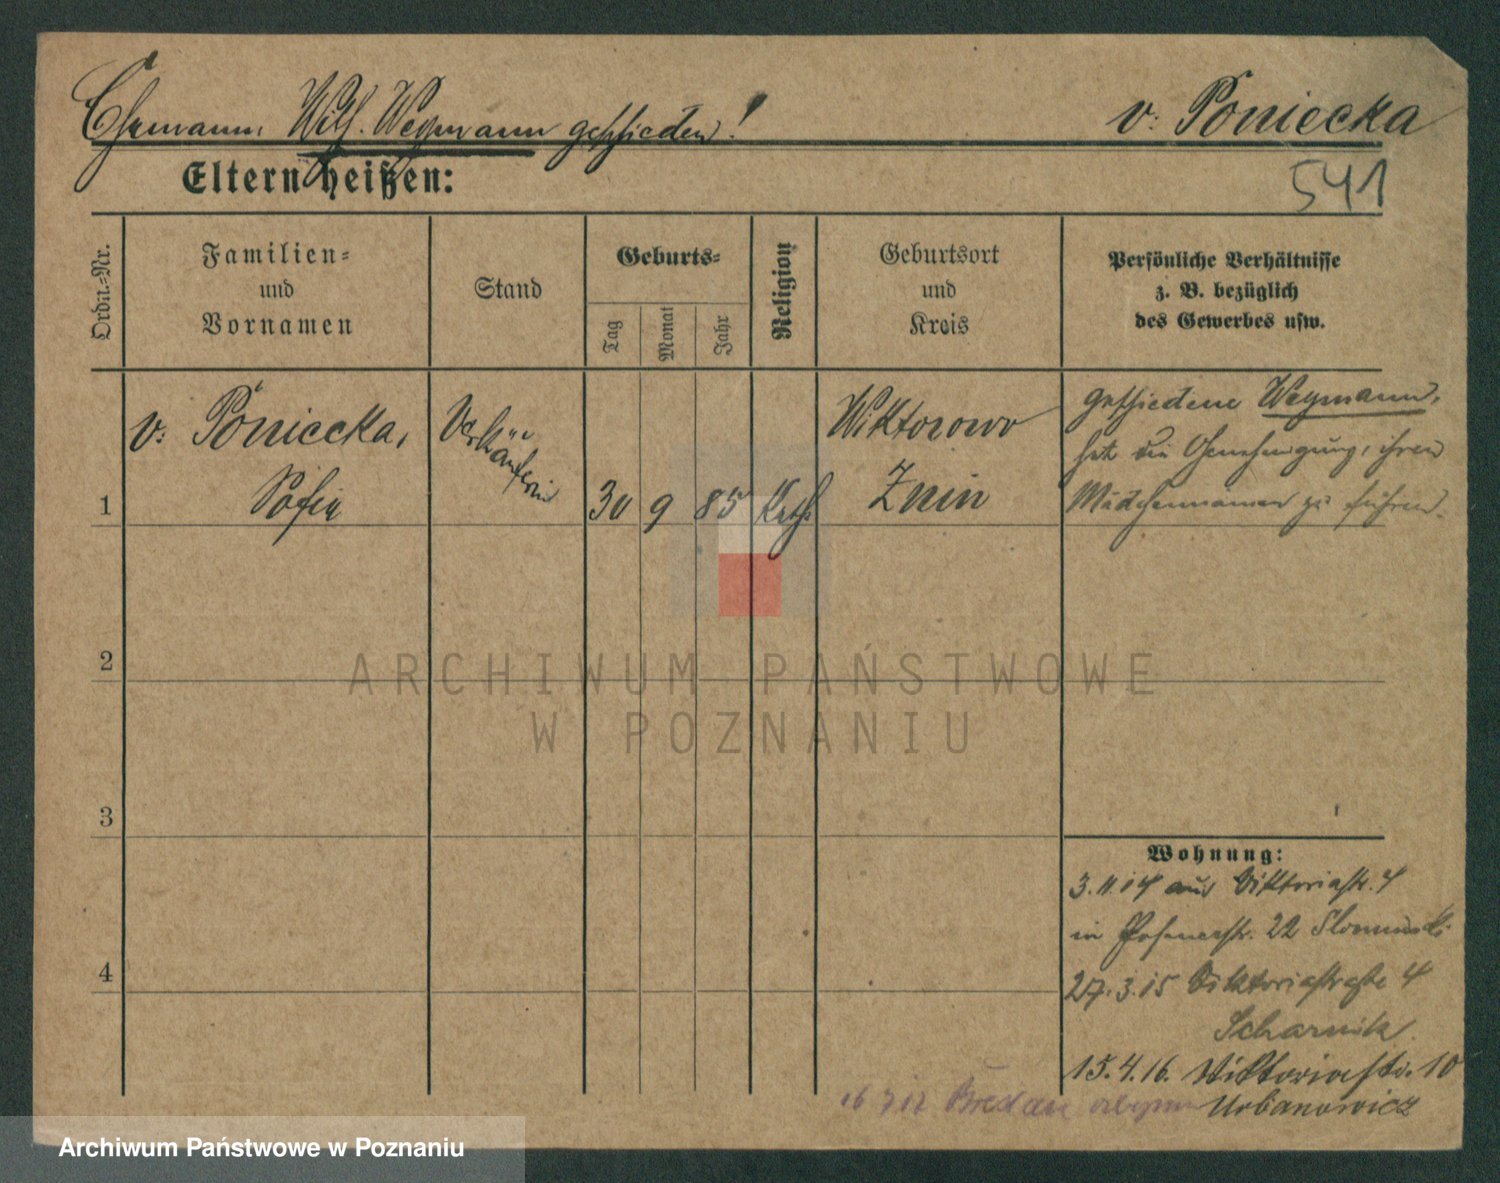 Ehemann Wilh. Weymann geschieden!
v. Poniecka
Eltern heißen:
541
Ordn.-Nr.
Familien-
und
Vornamen
Stand
Geburts-
Tag
Monat
Jahr
Religion
Geburtsort
und
Kreis
Persönliche Verhältnisse
z. B. bezüglich
des Gewerbes usw.
1
v. Poniecka,
Sofia
Verkäu-
ferin
30
9
85
Kath.
Wiktorowo
Znin
geschiedene Weymann,
hat die Genehmigung, ihren
Mädchennamen zu führen.
2
3
4
Wohnung:
3.11.14 aus Viktoriastr. 4
in Posenerstr. 22
27.3.15 Viktoriastraße 4
Scharnik
15.4.16. Viktoriastr. 10
Urbanowicz
ARCHIWUM PAŃSTWOWE
W POZNANIU
Archiwum Państwowe w Poznaniu